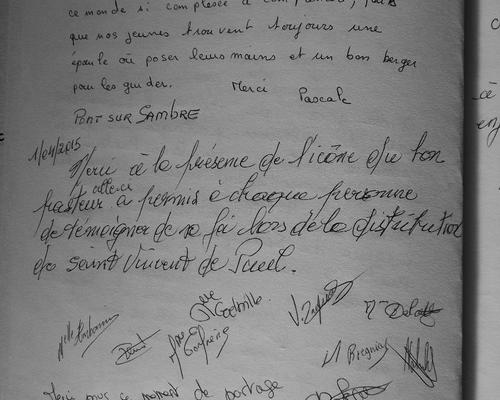 ce monde si complexe à comprendre, puis
que nos jeunes trouvent toujours une
épaule où poser leurs mains et un bon berger
pour les guider. Merci Pascale
PONT SUR SAMBRE
1/04/2015
Merci à la présence de l'icône du bon
pasteur celle-ci a permis à chaque personne
de témoigner de sa foi lors de la distribution
de saint Vincent de Paul.
Mme Godmille
Melle
Mme
V.
Mme
M Bregnia
Merci pour ce moment de partage